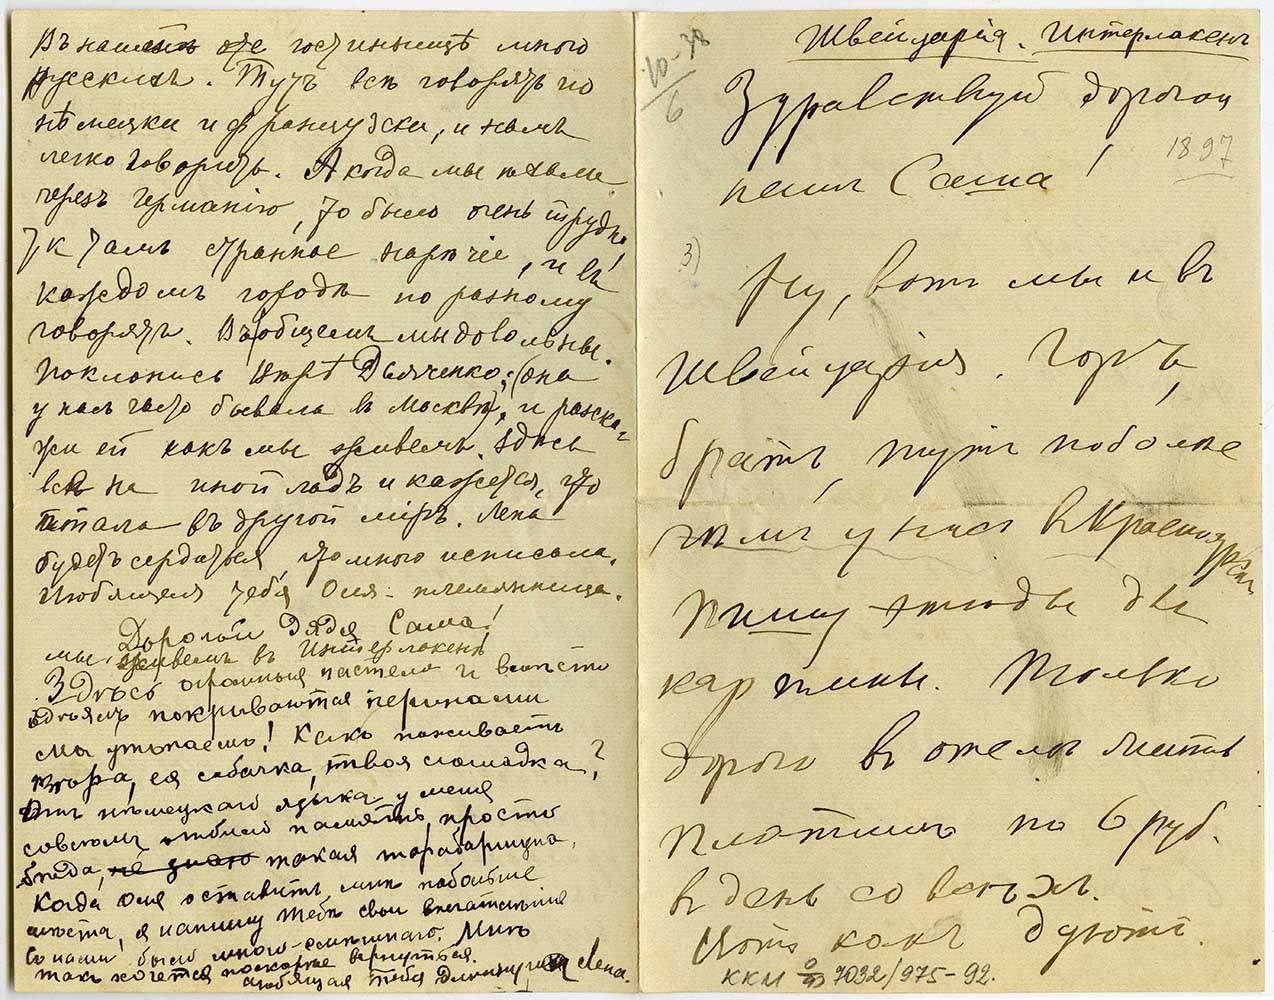 Швейцарія. Интерлакенъ
10-38
6
Здравствуй дорогой
1897
нашъ Саша!
3)
Ну, вотъ мы и въ
Швейцаріи. Горы,
братъ, тутъ поболѣе
чѣмъ у насъ въ Красноярскѣ
Пишу этюды для
картины. Только
дорого въ отелѣ жить
платимъ по 6 руб.
въ день со всѣхъ.
Вотъ какъ дуютъ.
ККМ 7032/975-92.
Въ нашей же гостиницѣ много
Русскихъ. Тутъ всѣ говорятъ по
нѣмецки и французски, и намъ
легко говорить. А когда мы ѣхали
черезъ Германію, то было очень трудно,
тк тамъ странное нарѣчіе, и въ
каждомъ городѣ по разному
говорятъ. Въобщемъ мы довольны.
Поклонись Дьяченко; (она
у насъ часто бывала въ Москвѣ), и разска-
жи ей какъ мы живемъ. Здѣсь
все на иной ладъ и кажется, что
попала въ другой міръ. Лена
будетъ сердиться, что много исписала.
Любящая тебя Оля - племянница.
Дорогой дядя Саша!
мы живемъ въ Интерлакенѣ
Здѣсь огромныя постели и вмѣсто
одѣялъ покрываются перинами
мы утопаемъ! Какъ поживаетъ
ея собачка, твоя лошадка?
Отъ нѣмецкаго языка у меня
совсѣмъ отбило память, просто
бѣда, не знаю такая тарабарщина.
Когда Оля оставитъ мнѣ побольше
мѣста, я напишу тебѣ свои впечатлѣнія
Съ нами было много смѣшнаго. Мнѣ
такъ хочется поскорѣе вернуться.
любящая тебя Лена.